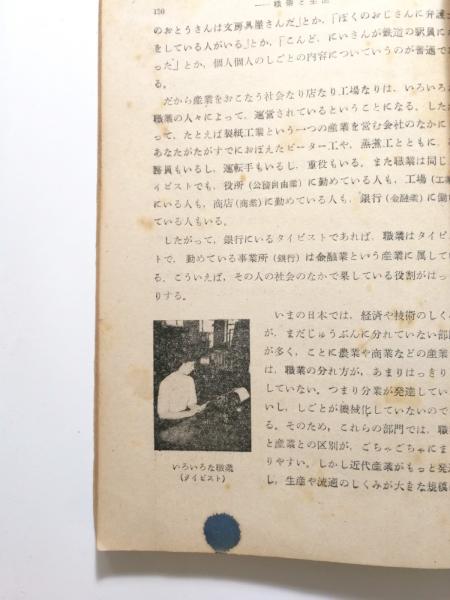 150
──職業と産業
のおとうさんは文房具屋さんだ」とか,「ぼくのおじさんに弁護士
をしている人がいる」とか,「こんど, にいさんが鉄道の駅員に
った」とか, 個人個人のしごとの内容についていうのが普通で
る。
だから産業をおこなう社会なり店なり工場なりは, いろいろ
職業の人々によって, 運営されているということになる。した
って, たとえば製紙工業という一つの産業を営む会社のなかに
あなたがたがすでにおぼえたビーター工や, 蒸煮工とともに,
務員もいるし, 運転手もいるし, 重役もいる。また職業は同じ
イピストでも, 役所 (公務自由業) に勤めている人も, 工場 (工業
にいる人も, 商店 (商業) に勤めている人も, 銀行 (金融業) に働
ている人もいる。
したがって, 銀行にいるタイピストであれば, 職業はタイピ
トで, 勤めている事業所 (銀行) は金融業という産業に属して
る。こういえば, その人の社会のなかで果している役割がはっ
りする。
いまの日本では, 経済や技術のしく
が, まだじゅうぶんに分れていない部
が多く, ことに農業や商業などの産業
は, 職業の分れ方が, あまりはっきり
していない。つまり分業が発達してい
いし, しごとが機械化していないので
る。そのため, これらの部門では, 職
と産業との区別が, ごちゃごちゃにま
りやすい。しかし近代産業がもっと発
し, 生産や流通のしくみが大きな規模
いろいろな職業
(タイピスト)